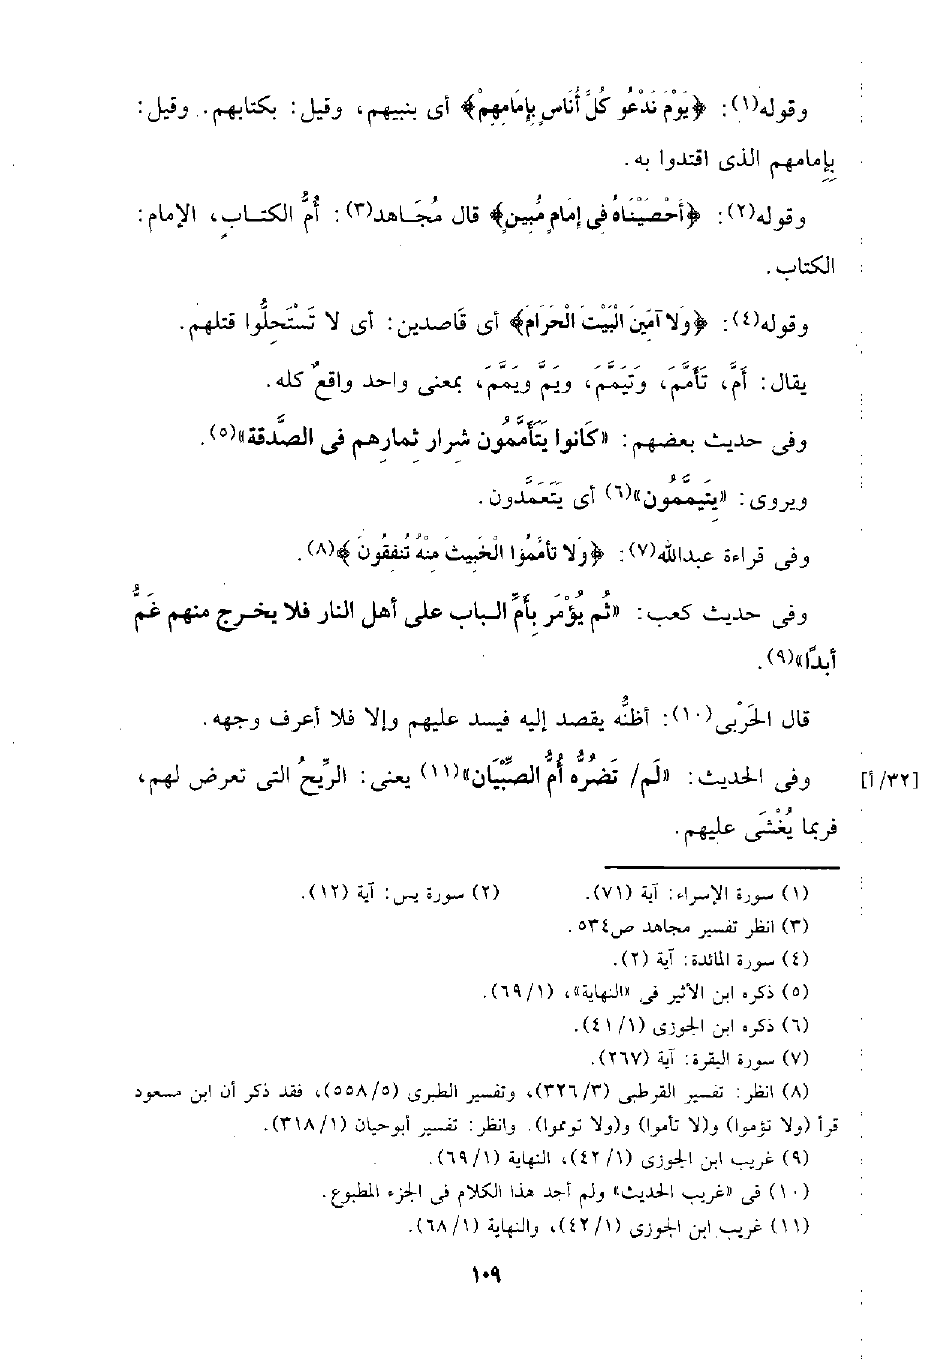 وقوله(١): ﴿يَوْمَ نَدْعُو كُلَّ أُنَاسٍ بِإِمَامِهِمْ﴾ أى بنبيهم، وقيل: بكتابهم. وقيل:
بإمامهم الذى اقتدوا به.
وقوله(٢): ﴿أَحْصَيْنَاهُ فِى إِمَامٍ مُبِينٍ﴾ قال مُجَاهد(٣): أُمُّ الكتابِ، الإمام:
الكتاب.
وقوله(٤): ﴿وَلَا آمِّينَ الْبَيْتَ الْحَرَامَ﴾ أى قاصدين: أى لا تَسْتَحِلُّوا قتلهم.
يقال: أَمَّ، تَأَمَّمَ، وتَيَمَّمَ، ويَمَّ ويَمَّمَ، بمعنى واحد واقعٌ كله.
وفى حديث بعضهم: «كَانوا يَتَأَمَّمُون شرار ثمارِهم فى الصَّدقة»(٥).
ويروى: «يتيمَّمُون»(٦) أى يَتَعَمَّدون.
وفى قراءة عبدالله(٧): ﴿وَلَا تأمَّمُوا الْخَبِيثَ مِنْهُ تُنفِقُونَ﴾(٨).
وفى حديث كعب: «ثُم يُؤْمَر بِأَمِّ الباب على أهل النار فلا يخرج منهم غَمٌّ
أبدًا»(٩).
قال الحَرْبى(١٠): أظنُّه يقصد إليه فيسد عليهم وإلا فلا أعرف وجهه.
[٣٢/أ] وفى الحديث: «لَم/ تَضُرُّه أُمُّ الصِّبْيَان»(١١) يعنى: الرِّيحُ التى تعرض لهم،
فربما يُغْشَى عليهم.
(١) سورة الإسراء: آية (٧١). (٢) سورة يس: آية (١٢).
(٣) انظر تفسير مجاهد ص٥٣٤.
(٤) سورة المائدة: آية (٢).
(٥) ذكره ابن الأثير فى «النهاية»، (٦٩/١).
(٦) ذكره ابن الجوزى (٤١/١).
(٧) سورة البقرة: آية (٢٦٧).
(٨) انظر: تفسير القرطبى (٣٢٦/٣)، وتفسير الطبرى (٥٥٨/٥)، فقد ذكر أن ابن مسعود
قرأ (ولا تؤموا) و(لا تأموا) و(ولا توموا). وانظر: تفسير أبوحيان (٣١٨/١).
(٩) غريب ابن الجوزى (٤٢/١)، النهاية (٦٩/١).
(١٠) فى «غريب الحديث» ولم أجد هذا الكلام فى الجزء المطبوع.
(١١) غريب ابن الجوزى (٤٢/١)، والنهاية (٦٨/١).
١٠٩